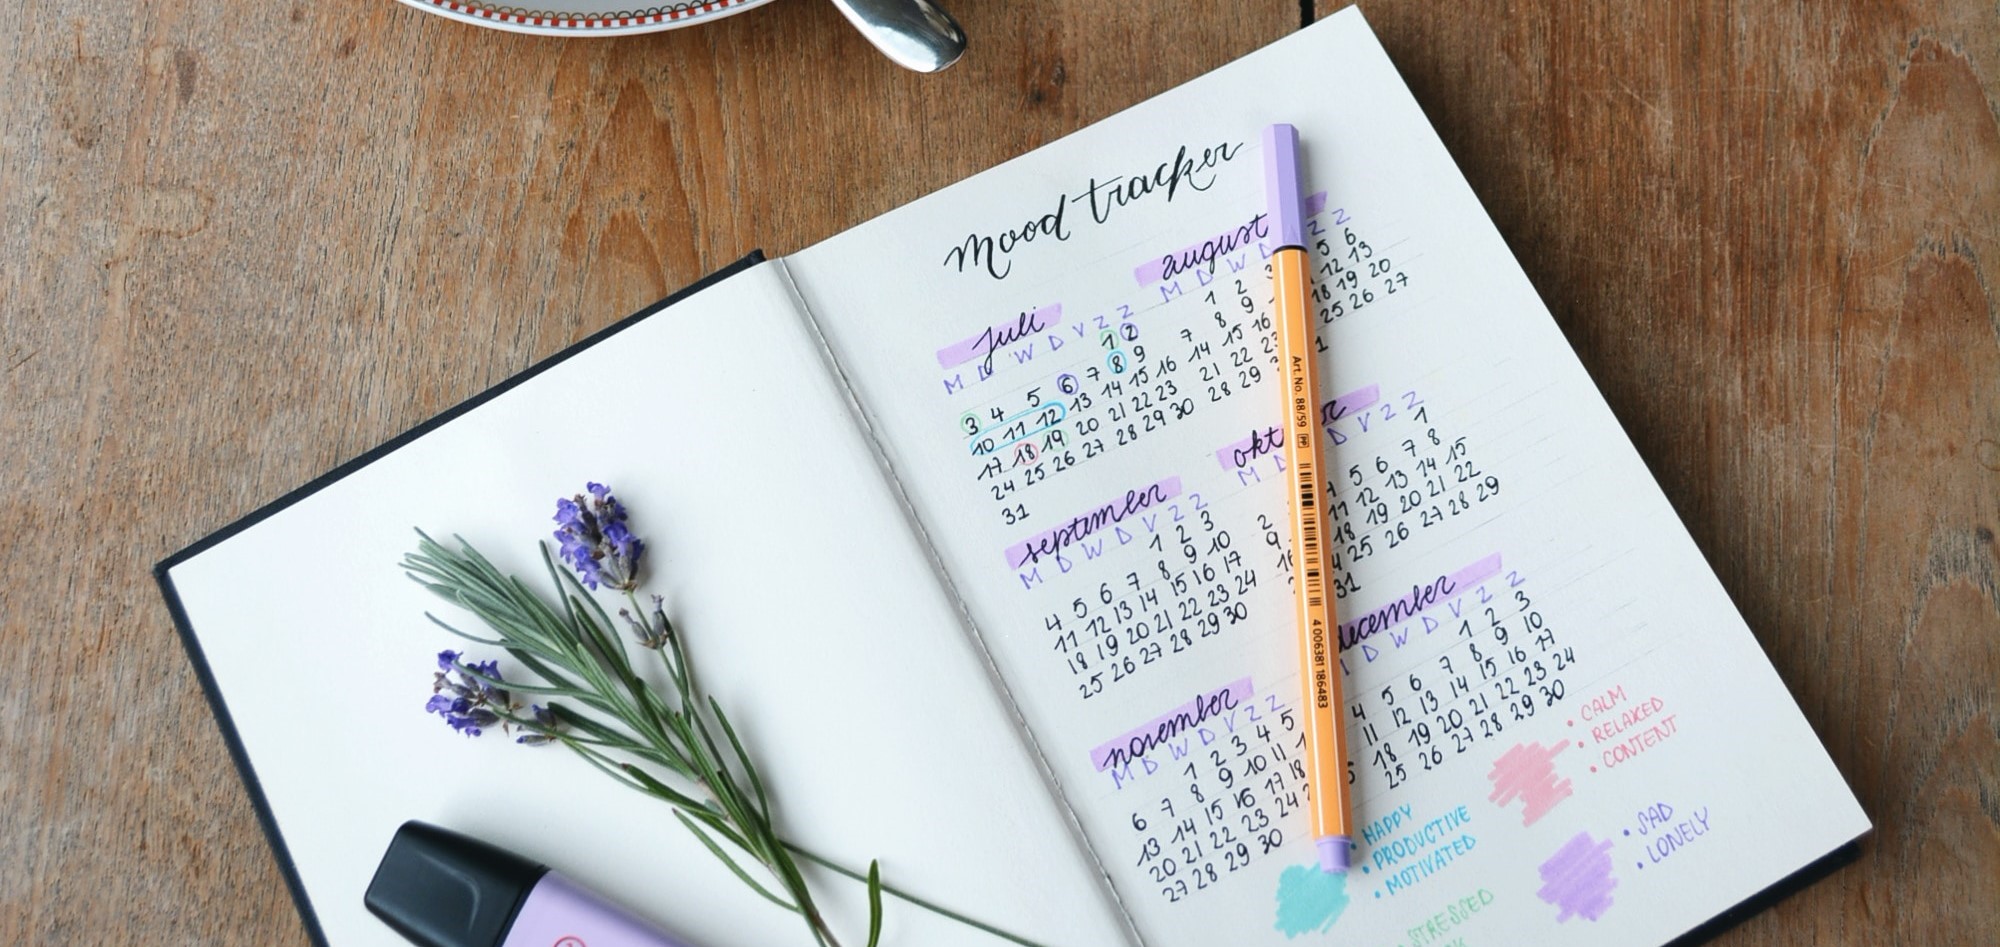 Mood tracker
juli
M D W D V Z Z
1 2
3 4 5 6 7 8 9
10 11 12 13 14 15 16
17 18 19 20 21 22 23
24 25 26 27 28 29 30
31
august
M D W D Z Z
1 2 3 5 6
7 8 9 12 13
14 15 16 18 19 20
21 22 23 25 26 27
28 29
september
M D W D V Z Z
1 2 3
4 5 6 7 8 9 10
11 12 13 14 15 16 17
18 19 20 21 22 23 24
25 26 27 28 29 30
M D D V Z Z
1
2 5 6 7 8
9 11 12 13 14 15
18 19 20 21 22
25 26 27 28 29
31
november
M D W D V Z Z
1 2 3 4 5
6 7 8 9 10 11
13 14 15 16 17 18
20 21 22 23 24
27 28 29 30
december
D W D V Z Z
1 2 3
4 5 6 7 8 9 10
11 12 13 14 15 16 17
18 19 20 21 22 23 24
25 26 27 28 29 30
• CALM
• RELAXED
• CONTENT
• HAPPY
• PRODUCTIVE
• MOTIVATED
• SAD
• LONELY
STRESSED
Art. No. 88/59
4 006381 186483